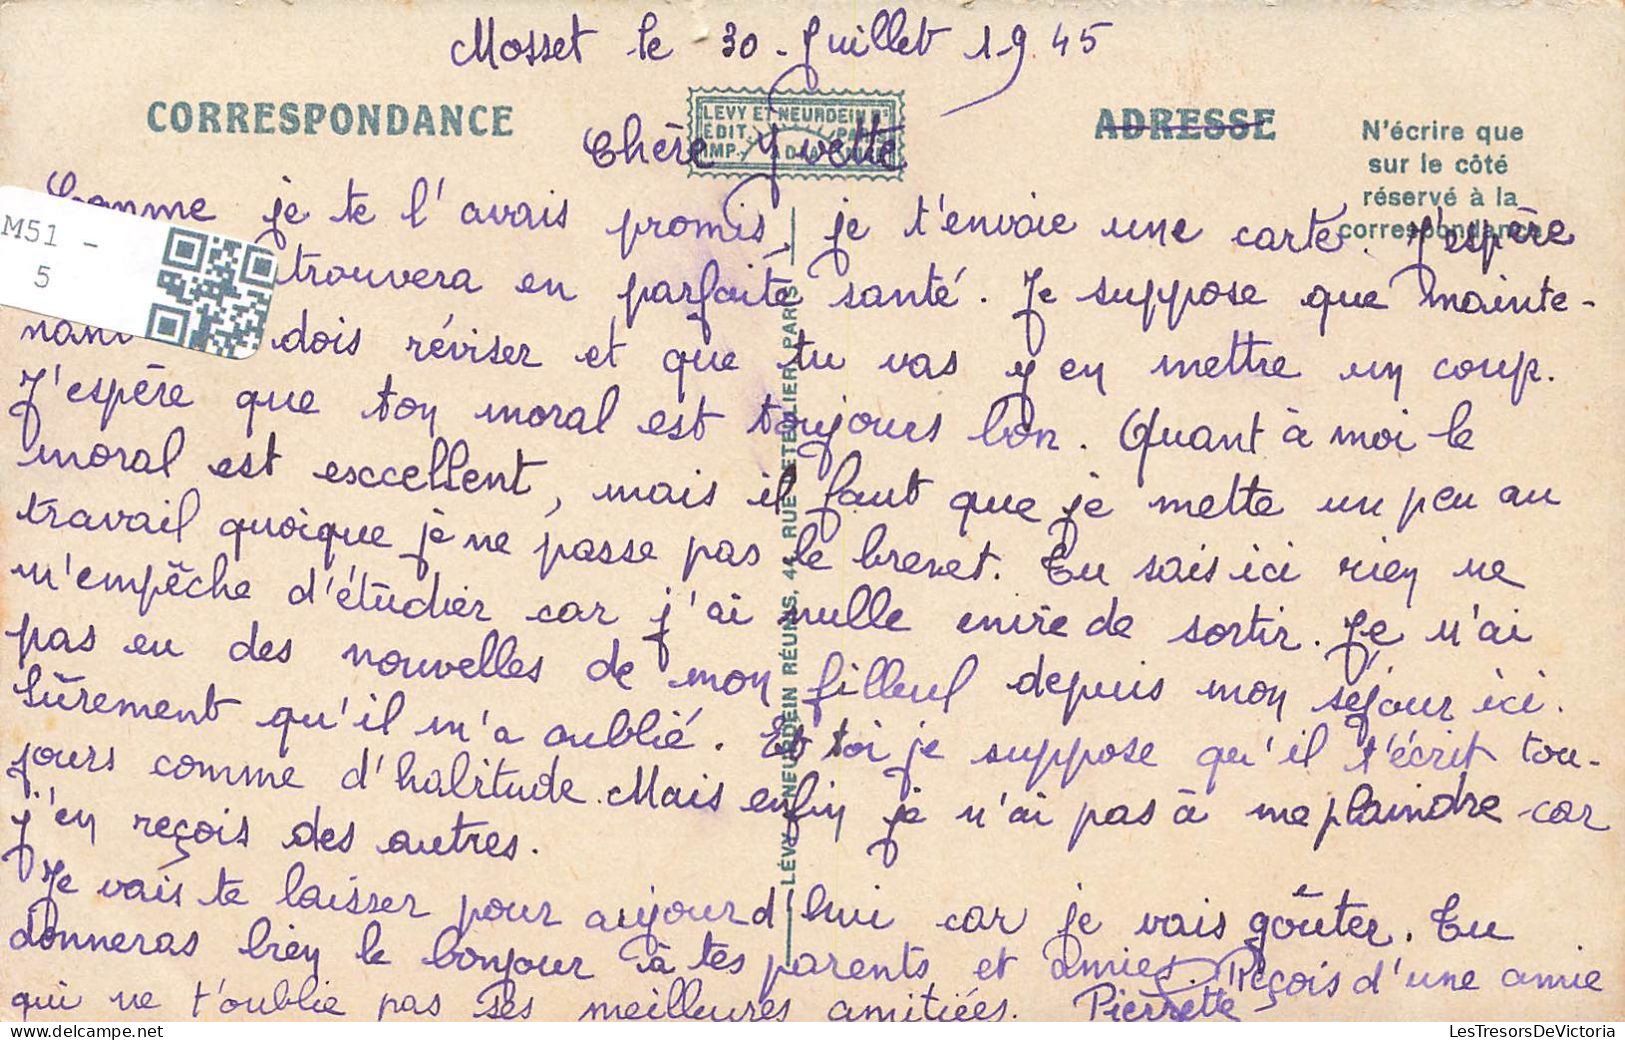 Mosset le 30 - Juillet 1945
CORRESPONDANCE
LEVY ET NEURDEIN RS
EDIT. PARIS
IMP.
ADRESSE
N'écrire que
sur le côté
réservé à la
correspondance
Chère Yvette
Comme je te l'avais promis, je t'envoie une carte. J'espère
M51 -
5
trouvera en parfaite santé. Je suppose que mainte-
nant dois réviser et que tu vas y en mettre un coup.
J'espère que ton moral est toujours bon. Quant à moi le
moral est exccellent, mais il faut que je mette un peu au
travail quoique je ne passe pas le brevet. Tu sais ici rien ne
m'empêche d'étudier car j'ai nulle envie de sortir. Je n'ai
pas eu des nouvelles de mon filleul depuis mon séjour ici.
Sûrement qu'il m'a oublié. Et toi je suppose qu'il t'écrit tou-
jours comme d'habitude. Mais enfin je n'ai pas à me plaindre car
j'en reçois des autres.
Je vais te laisser pour aujourd'hui car je vais goûter. Tu
donneras bien le bonjour à tes parents et amies. Reçois d'une amie
qui ne t'oublie pas ses meilleures amitiées. Pierrette
LÉVY & NEURDEIN RÉUNIS, 44, RUE LETELLIER, PARIS
LesTresorsDeVictoria